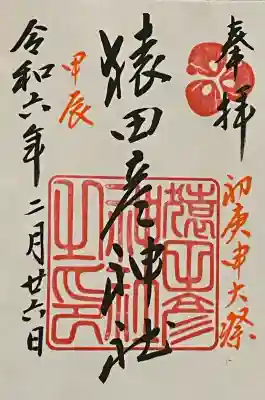 奉拝
初庚申大祭
猿田彦神社
猿田彦神社之印
甲辰
令和六年二月廿六日